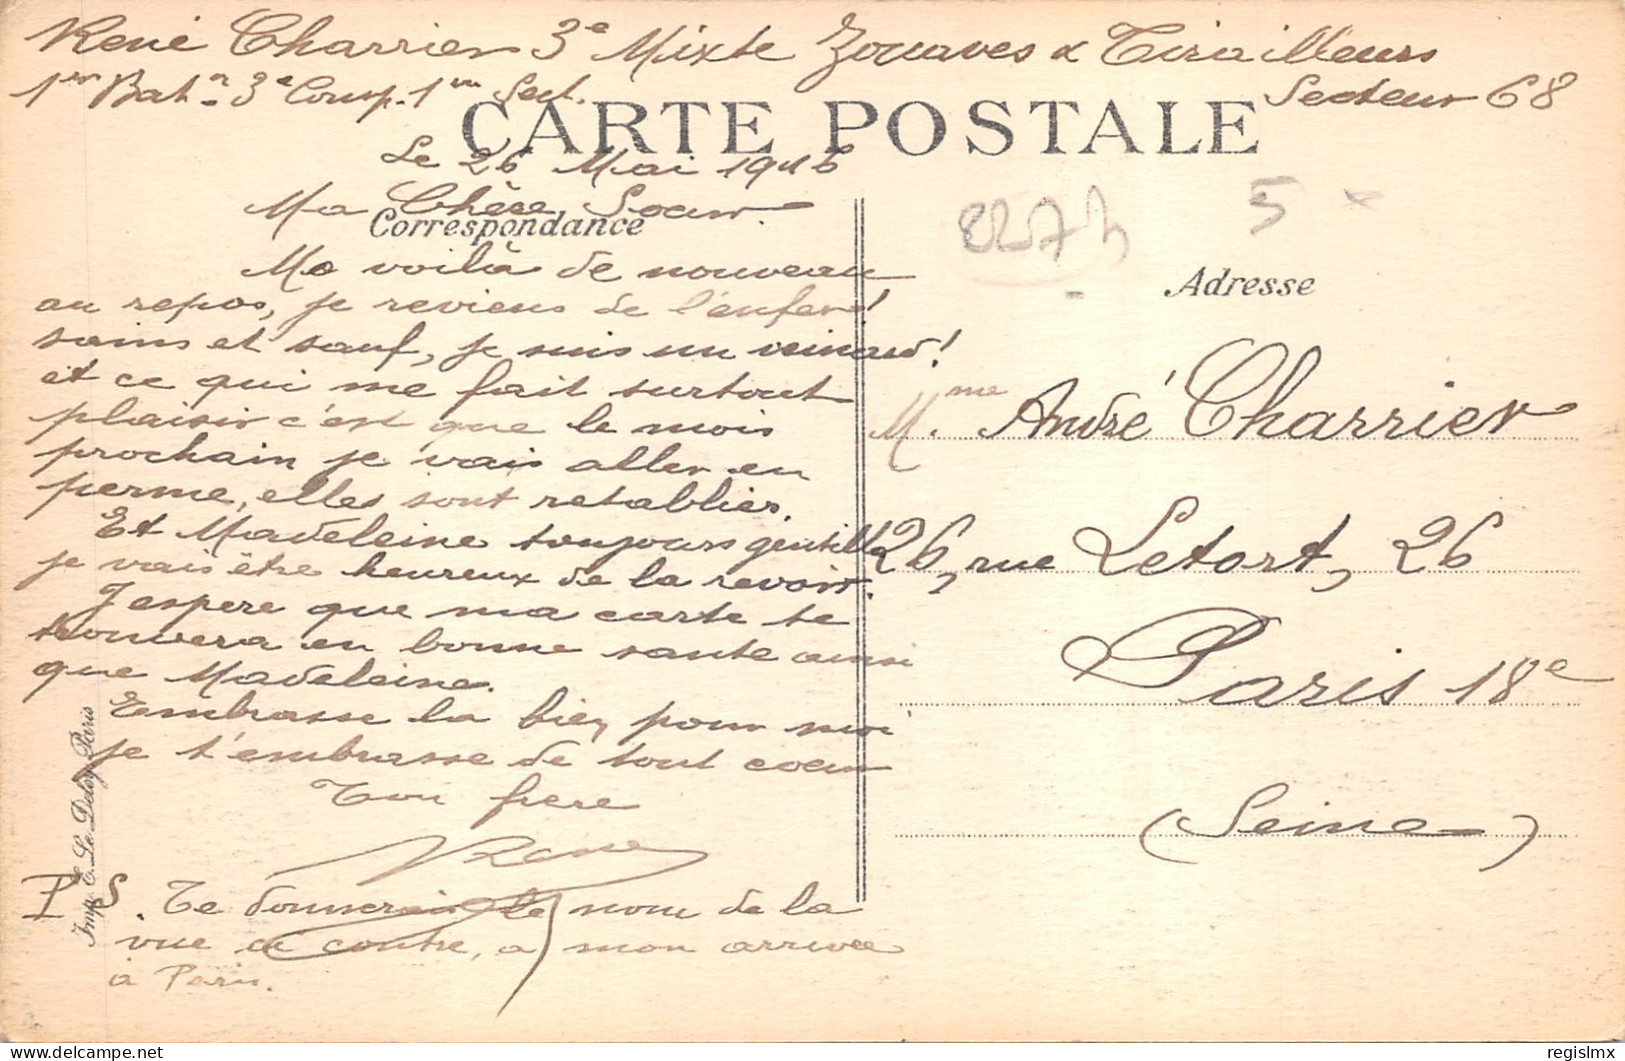 René Charrier 3e Mixte Zouaves & Tirailleurs
1er Batn 3e Comp. 1ere Sect.
Secteur 68
CARTE POSTALE
Le 26 Mai 1916
Ma Chère Soeur.
Correspondance
Me voilà de nouveau
au repos, je reviens de l'enfer!
sains et sauf, je suis un veinard!
et ce qui me fait surtout
plaisir c'est que le mois
prochain je vais aller en
perme, elles sont retablies.
Et Madeleine toujours gentille
je vais être heureux de la revoir.
J'espere que ma carte te
trouvera en bonne sante ainsi
que Madeleine.
Embrasse la bien pour moi
je t'embrasse de tout coeur
Ton frere
René
P S. Te donnerais le nom de la
vue ci contre, a mon arrivée
à Paris.
8227h
5
Adresse
Mme André Charrier
26, rue Letort, 26
Paris 18e
(Seine)
Imp. E. Le Deley Paris
delcampe.net
regislmx